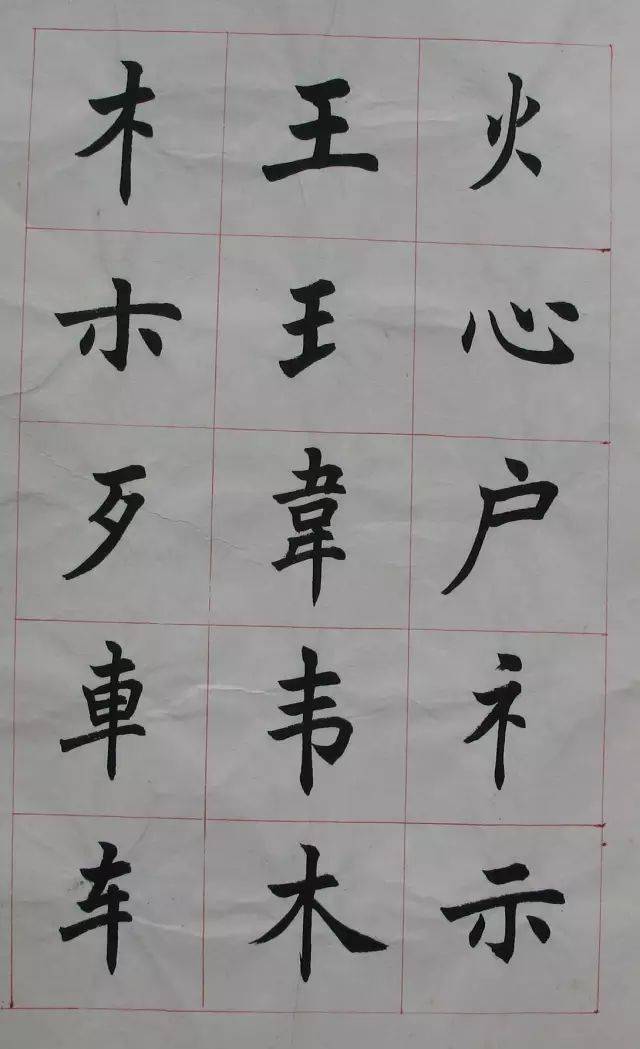 火心户礻示
王王韋韦木
木朩歹車车